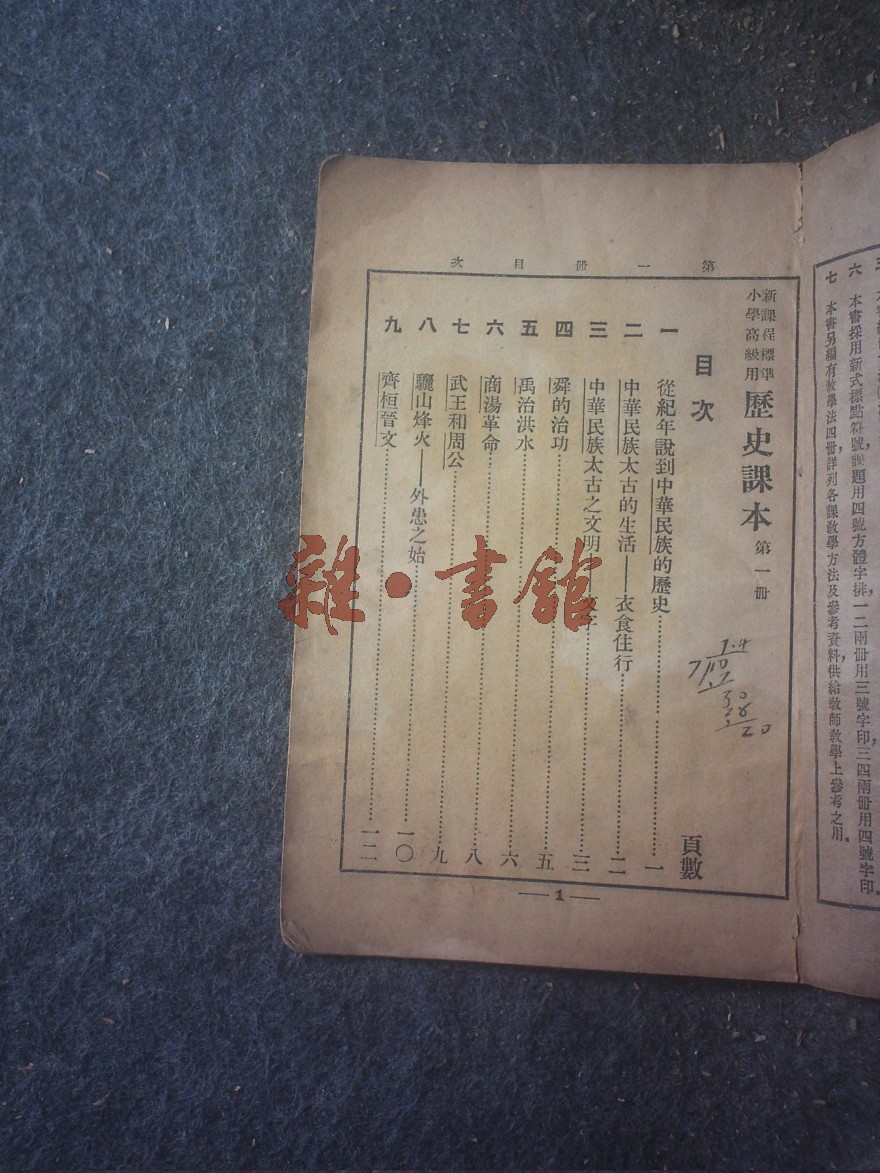 六　本書採用新式標點符號,課題用四號方體字排,一二兩冊用三號字印,三四兩冊用四號字印.
七　本書另編有教學法四冊,詳列各課教學方法及參考資料,供給教師教學上參考之用.
第一冊目次
新課程標準
小學高級用
歷史課本 第一冊
目次
頁數
一　從紀年說到中華民族的歷史……一
二　中華民族太古的生活——衣食住行……二
三　中華民族太古之文明——……三
四　舜的治功……五
五　禹治洪水……六
六　商湯革命……八
七　武王和周公……九
八　驪山烽火——外患之始……一〇
九　齊桓晉文……一二
—1—
雜·書館